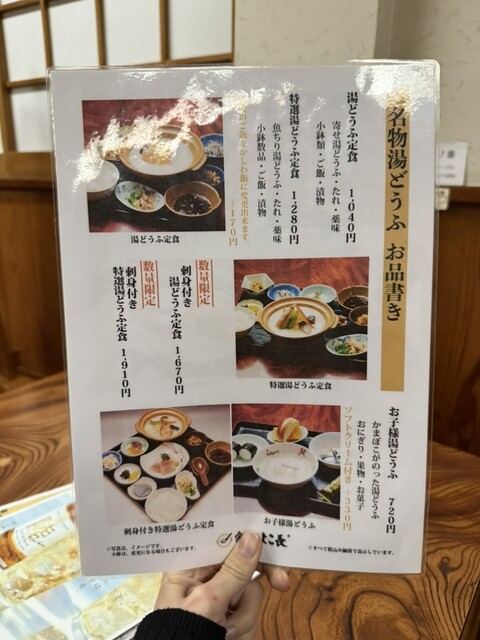 名物湯どうふ お品書き
湯どうふ定食 1,040円
寄せ湯どうふ・たれ・薬味
小鉢類・ご飯・漬物
特選湯どうふ定食 1,280円
魚ちり湯どうふ・たれ・薬味
小鉢数品・ご飯・漬物
のご飯をかしわ飯に変更出来ます。 +170円
湯どうふ定食
数量限定
刺身付き
湯どうふ定食 1,670円
数量限定
刺身付き
特選湯どうふ定食 1,910円
特選湯どうふ定食
お子様湯どうふ 720円
かまぼこがのった湯どうふ
おにぎり・果物・お菓子
ソフトクリーム付き +330円
刺身付き特選湯どうふ定食
お子様湯どうふ
※写真は、イメージです。
小鉢は、変更になる場合もございます。
※すべて税込み価格で表示しています。